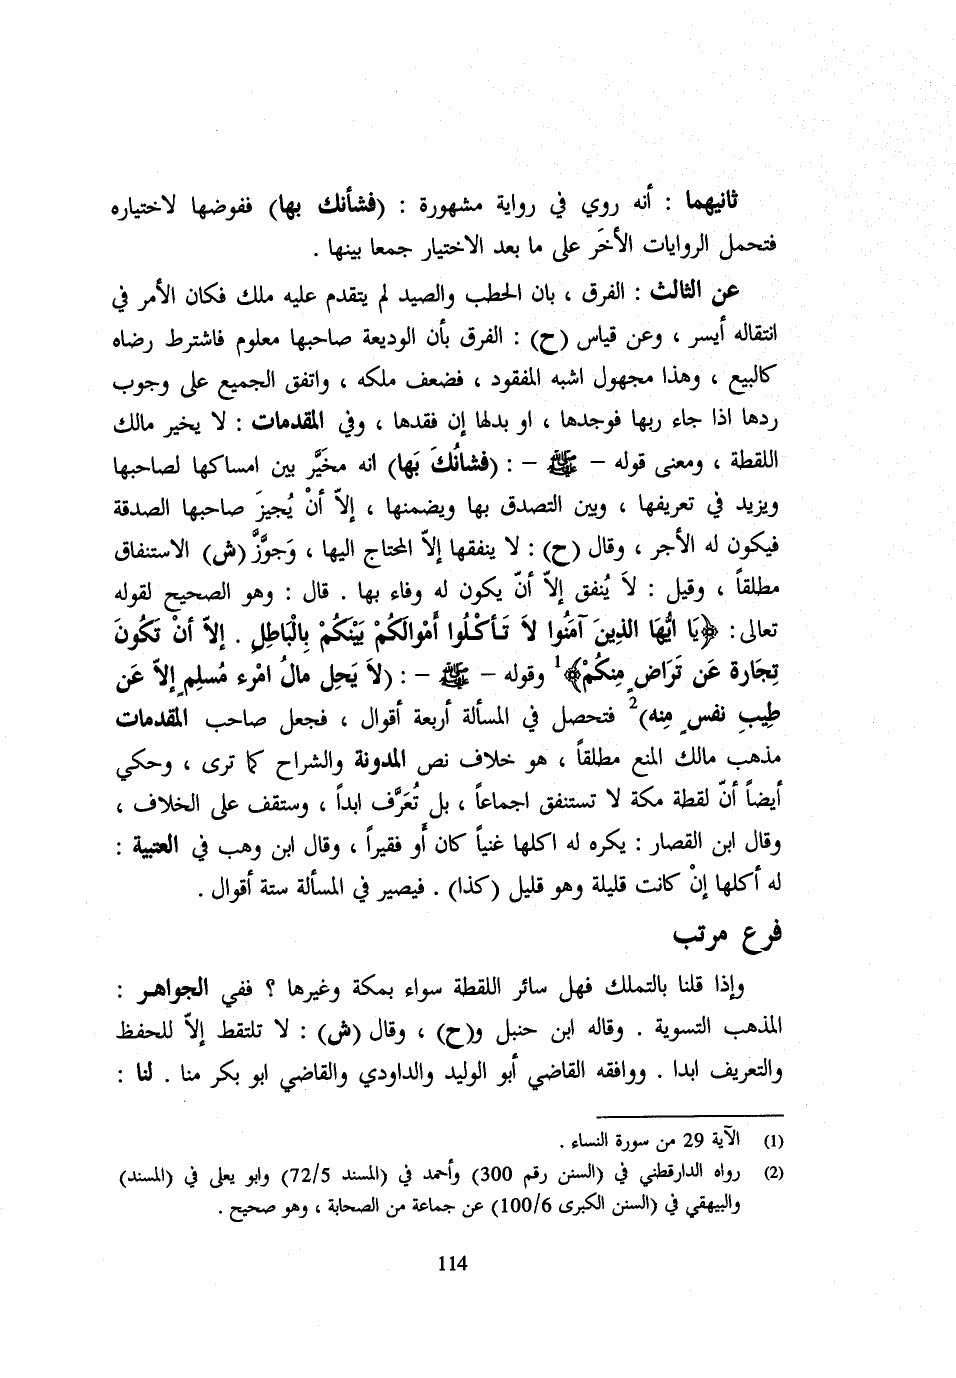 ثانيهما : أنه روي في رواية مشهورة : (فشأنك بها) ففوضها لاختياره
فتحمل الروايات الأخَر على ما بعد الاختيار جمعا بينها .
عن الثالث : الفرق ، بان الحطب والصيد لم يتقدم عليه ملك فكان الأمر في
انتقاله أيسر ، وعن قياس (ح) : الفرق بأن الوديعة صاحبها معلوم فاشترط رضاه
كالبيع ، وهذا مجهول اشبه المفقود ، فضعف ملكه ، واتفق الجميع على وجوب
ردها اذا جاء ربها فوجدها ، او بدلها إن فقدها ، وفي المقدمات : لا يخير مالك
اللقطة ، ومعنى قوله – ﷺ – : (فشانُكَ بَها) انه مخَيَّر بين امساكها لصاحبها
ويزيد في تعريفها ، وبين التصدق بها ويضمنها ، إلاّ أنْ يُجيزَ صاحبها الصدقة
فيكون له الأجر ، وقال (ح) : لا ينفقها إلاّ المحتاج اليها ، وَجوَّزَّ (ش) الاستنفاق
مطلقاً ، وقيل : لاَ يُنفق إلاّ أنّ يكون له وفاء بها . قال : وهو الصحيح لقوله
تعالى: ﴿يَا ايُّهَا الذينَ آمَنُوا لاَ تَأكْلُوا أَمْوالَكُمْ بَيْنَكُمْ بِالْبَاطلِ . إلاّ أنْ تَكُونَ
تِجَارة عَن تَرَاضٍ مِنكُمْ﴾1 وقوله – ﷺ – : (لاَ يَحِل مالُ امْرء مُسلِمٍ إلاّ عَن
طِيبِ نفسٍ مِنه)2 فتحصل في المسألة أربعة أقوال ، فجعل صاحب المقدمات
مذهب مالك المنع مطلقاً ، هو خلاف نص المدونة والشراح كما ترى ، وحكي
أيضاً أنّ لقطة مكة لا تستنفق اجماعاً ، بل تُعَرَّف ابداً ، وستقف على الخلاف ،
وقال ابن القصار : يكره له اكلها غنياً كان أو فقيراً ، وقال ابن وهب في العتبية :
له أكلها إنْ كانت قليلة وهو قليل (كذا) . فيصير في المسألة ستة أقوال .
فرع مرتب
وإذا قلنا بالتملك فهل سائر اللقطة سواء بمكة وغيرها ؟ ففي الجواهر :
المذهب التسوية . وقاله ابن حنبل و(ح) ، وقال (ش) : لا تلتقط إلاّ للحفظ
والتعريف ابدا . ووافقه القاضي أبو الوليد والداودي والقاضي ابو بكر منا . لنا :
(1) الآية 29 من سورة النساء .
(2) رواه الدارقطني في (السنن رقم 300) وأحمد في (المسند 72/5) وابو يعلى في (المسند)
والبيهقي في (السنن الكبرى 100/6) عن جماعة من الصحابة ، وهو صحيح .
114